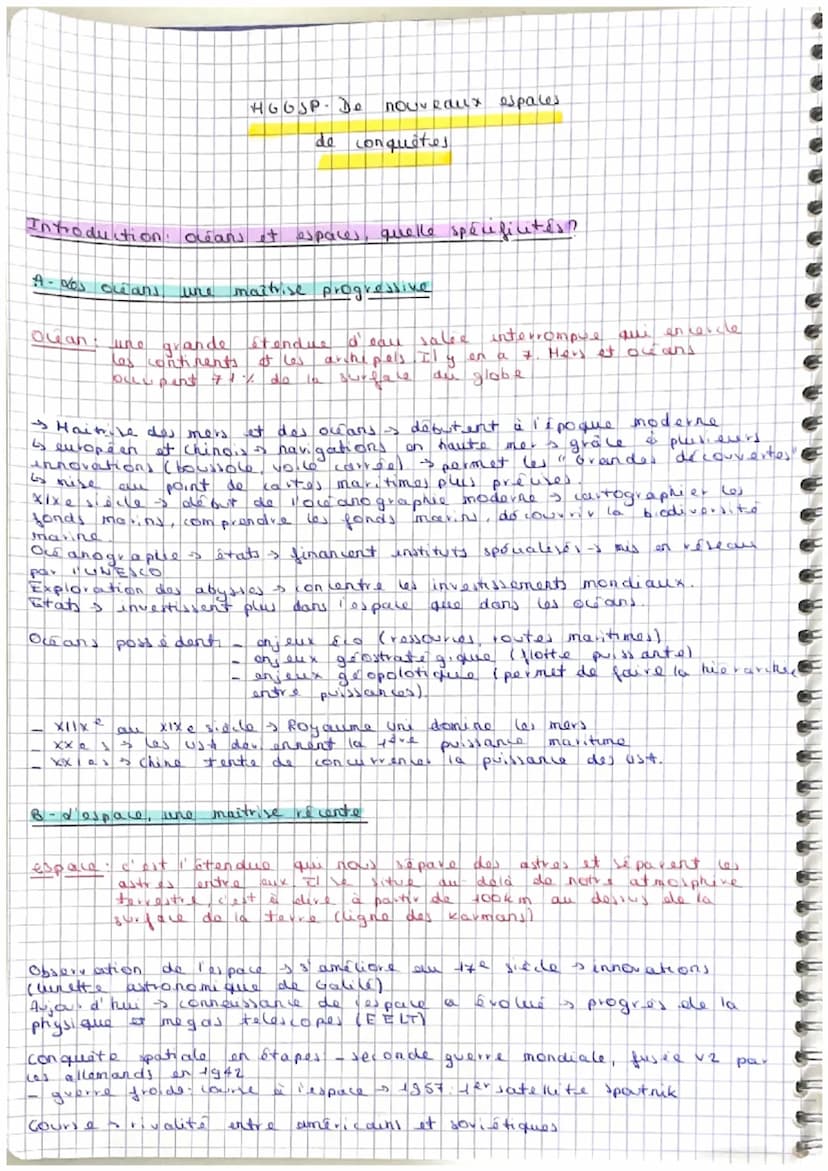 HGGSP - De nouveaux espaces
de conquêtes
Introduction: océans et espaces, quelle spécificités?
A - Les océans, une maîtrise progressive
Océan : une grande étendue d'eau salée interrompue qui encercle
les continents et les archipels. Il y en a 7. Mers et océans
occupent 71% de la surface du globe
→ Maitrise des mers et des océans → débutent à l'époque moderne
↳ européen et chinois → navigations en haute mer → grâce à plusieurs
innovations (boussole, voile carrée) → permet les "Grandes découvertes"
↳ mise au point de cartes maritimes plus précises.
XIXe siècle → début de l'océanographie moderne → cartographier les
fonds marins, comprendre les fonds marins, découvrir la biodiversité
marine.
Océanographie → états → financent instituts spécialisés → mis en réseau
par l'UNESCO
Exploration des abysses → concentre les investissements mondiaux.
Etats → invertissent plus dans l'espace que dans les océans.
Océans possèdent - enjeux éco (ressources, routes maritimes)
- enjeux géostratégique (flotte puissante)
- enjeux géopolotique (permet de faire la hierarchie
entre puissances).
- XIIX e au XIXe siècle → Royaume Uni domine les mers
- XXe s → les USA deviennent la 1ère puissance maritime
- XXIe s → Chine tente de concurrencer la puissance des USA.
B - L'espace, une maîtrise récente
Espace : c'est l'étendue qui nous sépare des astres et séparent les
astres entre eux Il se situe au delà de notre atmosphère
terrestre, c'est à dire à partir de 100km au dessus de la
surface de la terre (ligne des Karmans)
Observation de l'espace → s'améliore au 17e siècle → innovations
(lunette astronomique de Galilé)
Aujourd'hui → connaissance de l'espace a évolué → progrès de la
physique et megas telescopes (EELT)
Conquête spatiale en étapes - seconde guerre mondiale, fusée V2 par
les allemands en 1942
- guerre froide: course à l'espace → 1957: 1er satellite Spoutnik
Course → rivalité entre américains et soviétiques